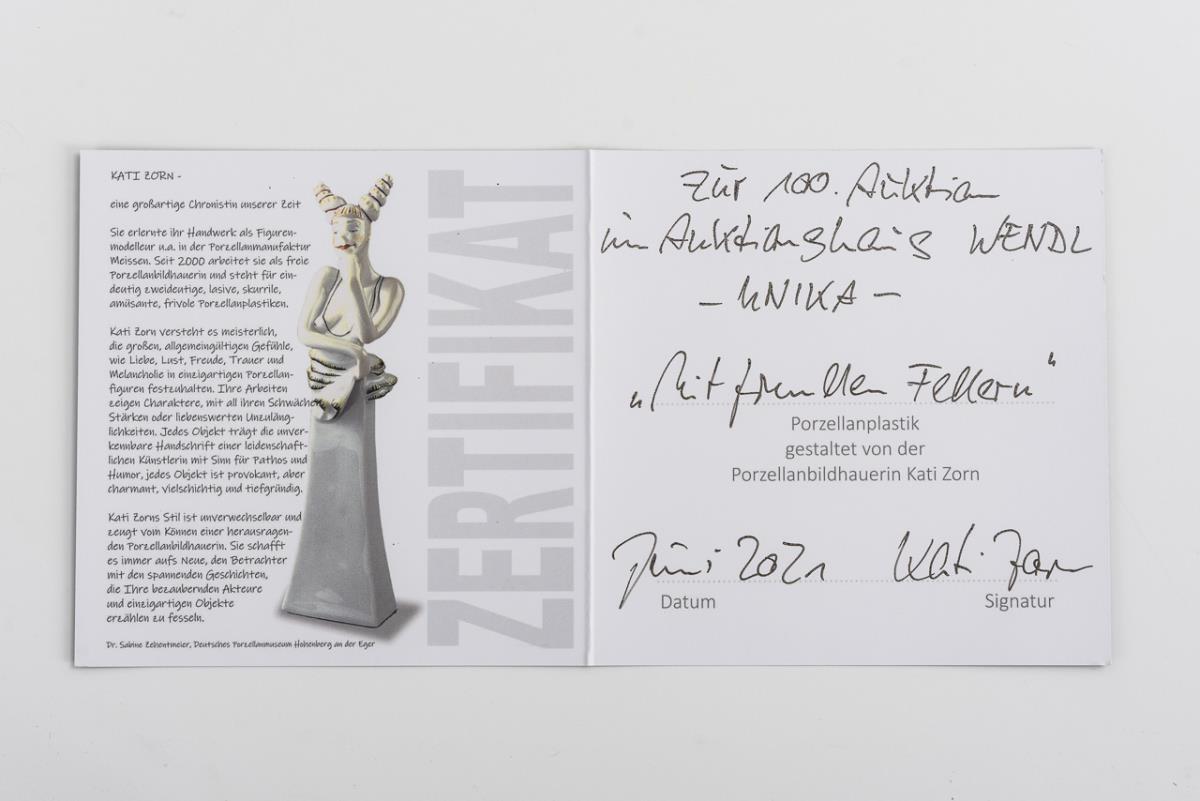 KATI ZORN -
eine großartige Chronistin unserer Zeit
Sie erlernte ihr Handwerk als Figuren-
modelleur u.a. in der Porzellanmanufaktur
Meissen. Seit 2000 arbeitet sie als freie
Porzellanbildhauerin und steht für ein-
deutig zweideutige, lasive, skurrile,
amüsante, frivole Porzellanplastiken.
Kati Zorn versteht es meisterlich,
die großen, allgemeingültigen Gefühle,
wie Liebe, Lust, Freude, Trauer und
Melancholie in einzigartigen Porzellan-
figuren festzuhalten. Ihre Arbeiten
zeigen Charaktere, mit all ihren Schwächen
Stärken oder liebenswerten Unzuläng-
lichkeiten. Jedes Objekt trägt die unver-
kennbare Handschrift einer leidenschaft-
lichen Künstlerin mit Sinn für Pathos und
Humor, jedes Objekt ist provokant, aber
charmant, vielschichtig und tiefgründig.
Kati Zorns Stil ist unverwechselbar und
zeugt vom Können einer herausragen-
den Porzellanbildhauerin. Sie schafft
es immer aufs Neue, den Betrachter
mit den spannenden Geschichten,
die Ihre bezaubernden Akteure
und einzigartigen Objekte
erzählen zu fesseln.
Dr. Sabine Zehentmeier, Deutsches Porzellanmuseum Hohenberg an der Eger
ZERTIFIKAT
Zur 100. Auktion
im Auktionshaus WENDL
- UNIKA -
„Mit fremden Federn"
Porzellanplastik
gestaltet von der
Porzellanbildhauerin Kati Zorn
Juni 2021 Kati Zorn
Datum Signatur